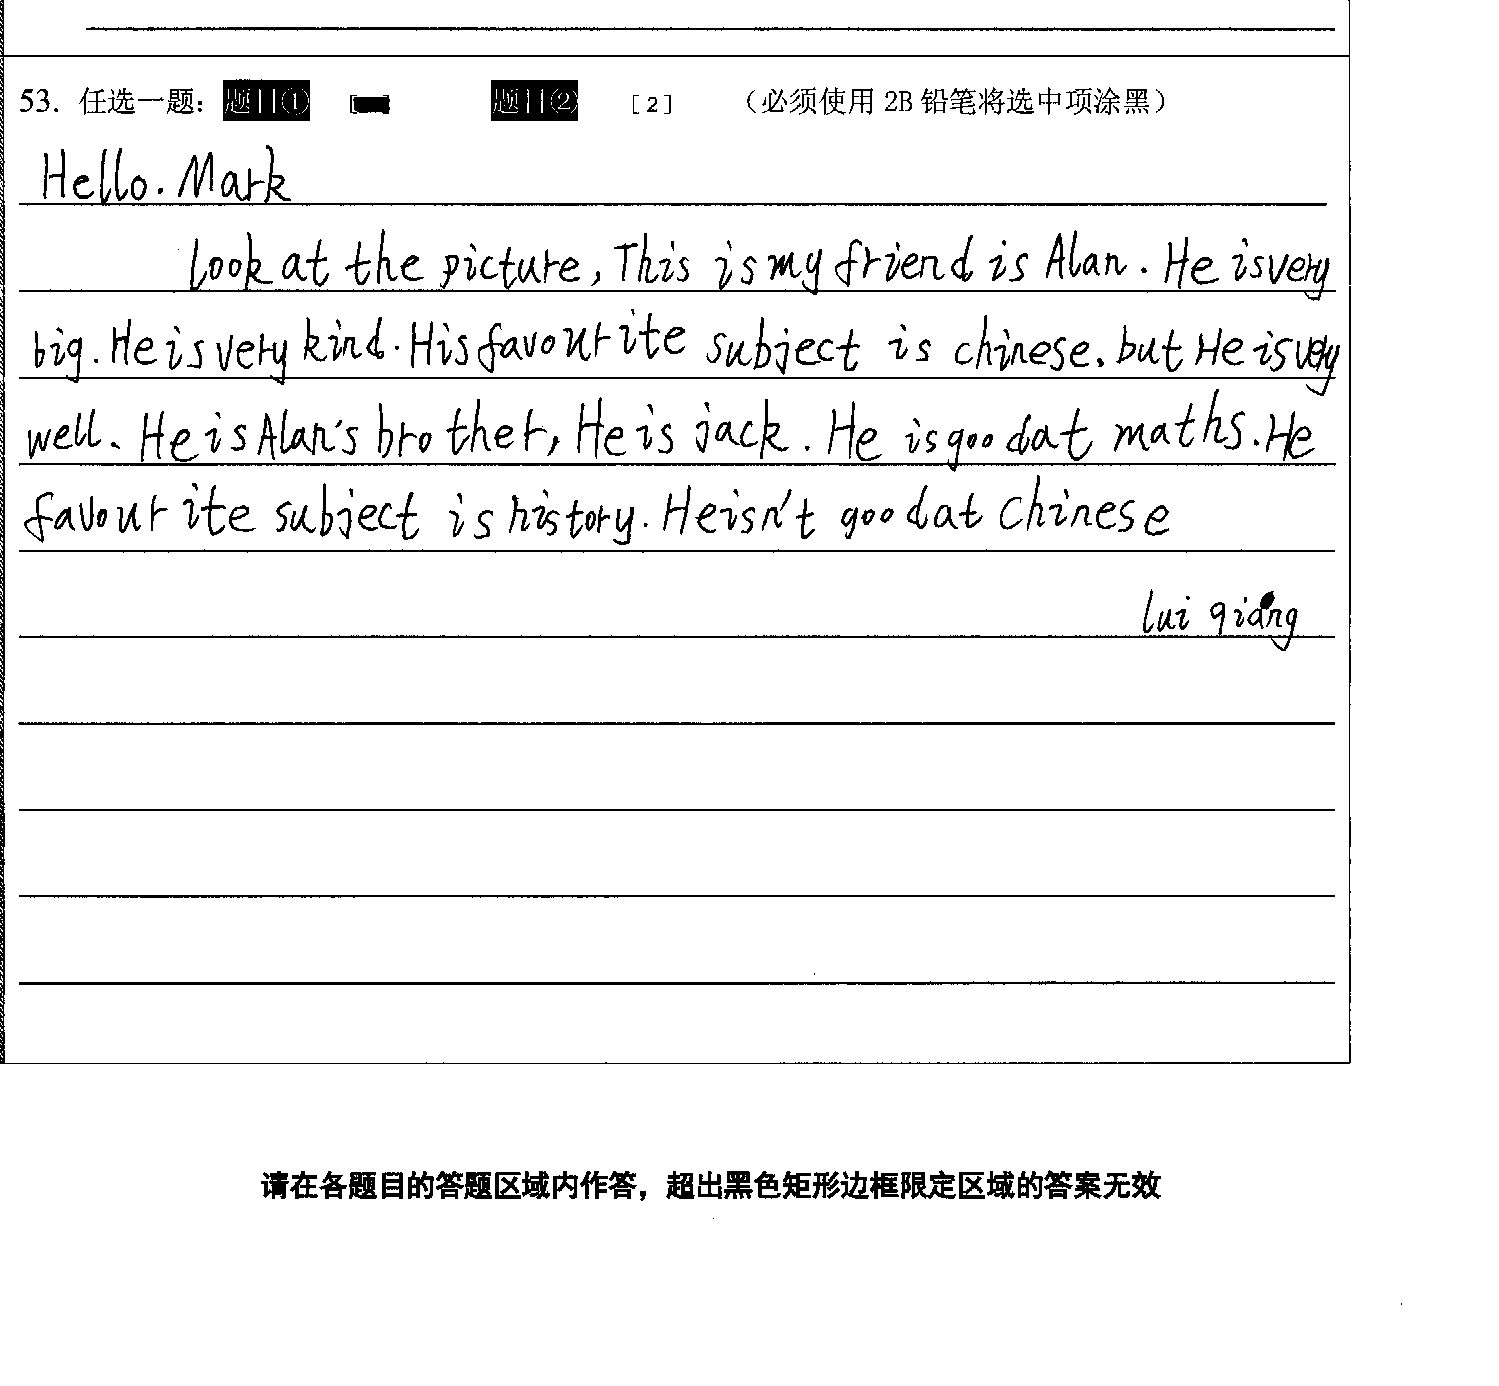 53. 任选一题： 题目① 题目② [2] （必须使用 2B 铅笔将选中项涂黑）
Hello. Mark
look at the picture, This is my friend is Alan. He is very
big. He is very kind. His favourite subject is chinese, but He is very
well. He is Alan's brother, He is jack. He is good at maths. He
favourite subject is history. He isn't good at Chinese
lui qiang
请在各题目的答题区域内作答，超出黑色矩形边框限定区域的答案无效